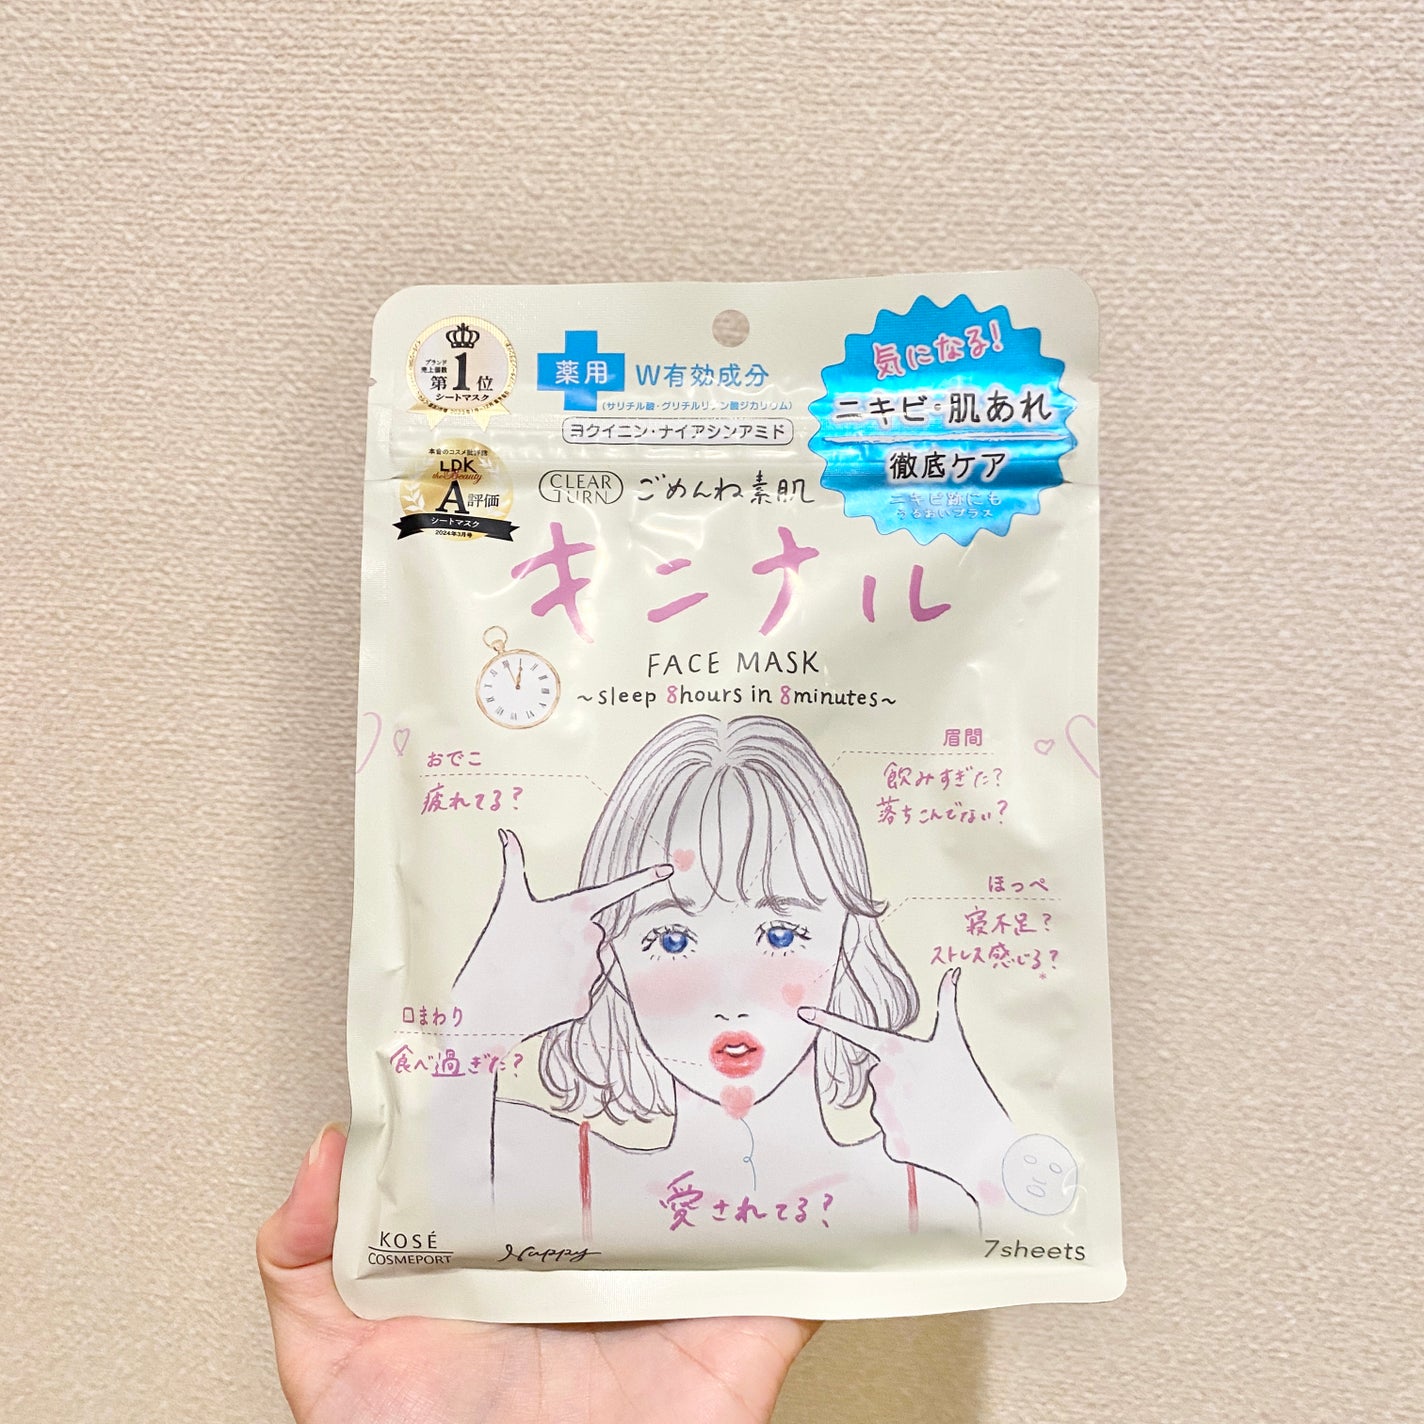 ブランド
売上個数
第1位
シートマスク
薬用
W有効成分
(サリチル酸・グリチルリチン酸ジカリウム)
ヨクイニン・ナイアシンアミド
気になる!
ニキビ・肌あれ
徹底ケア
ニキビ跡にも
うるおいプラス
本音のコスメ批評誌
LDK
the Beauty
A評価
シートマスク
2024年3月号
CLEAR
TURN
ごめんね素肌
キニナル
FACE MASK
~sleep 8hours in 8minutes~
おでこ
疲れてる?
眉間
飲みすぎた?
落ちこんでない?
ほっぺ
寝不足?
ストレス感じる?
*
口まわり
食べ過ぎた?
愛されてる?
KOSÉ
COSMEPORT
Happy
7sheets